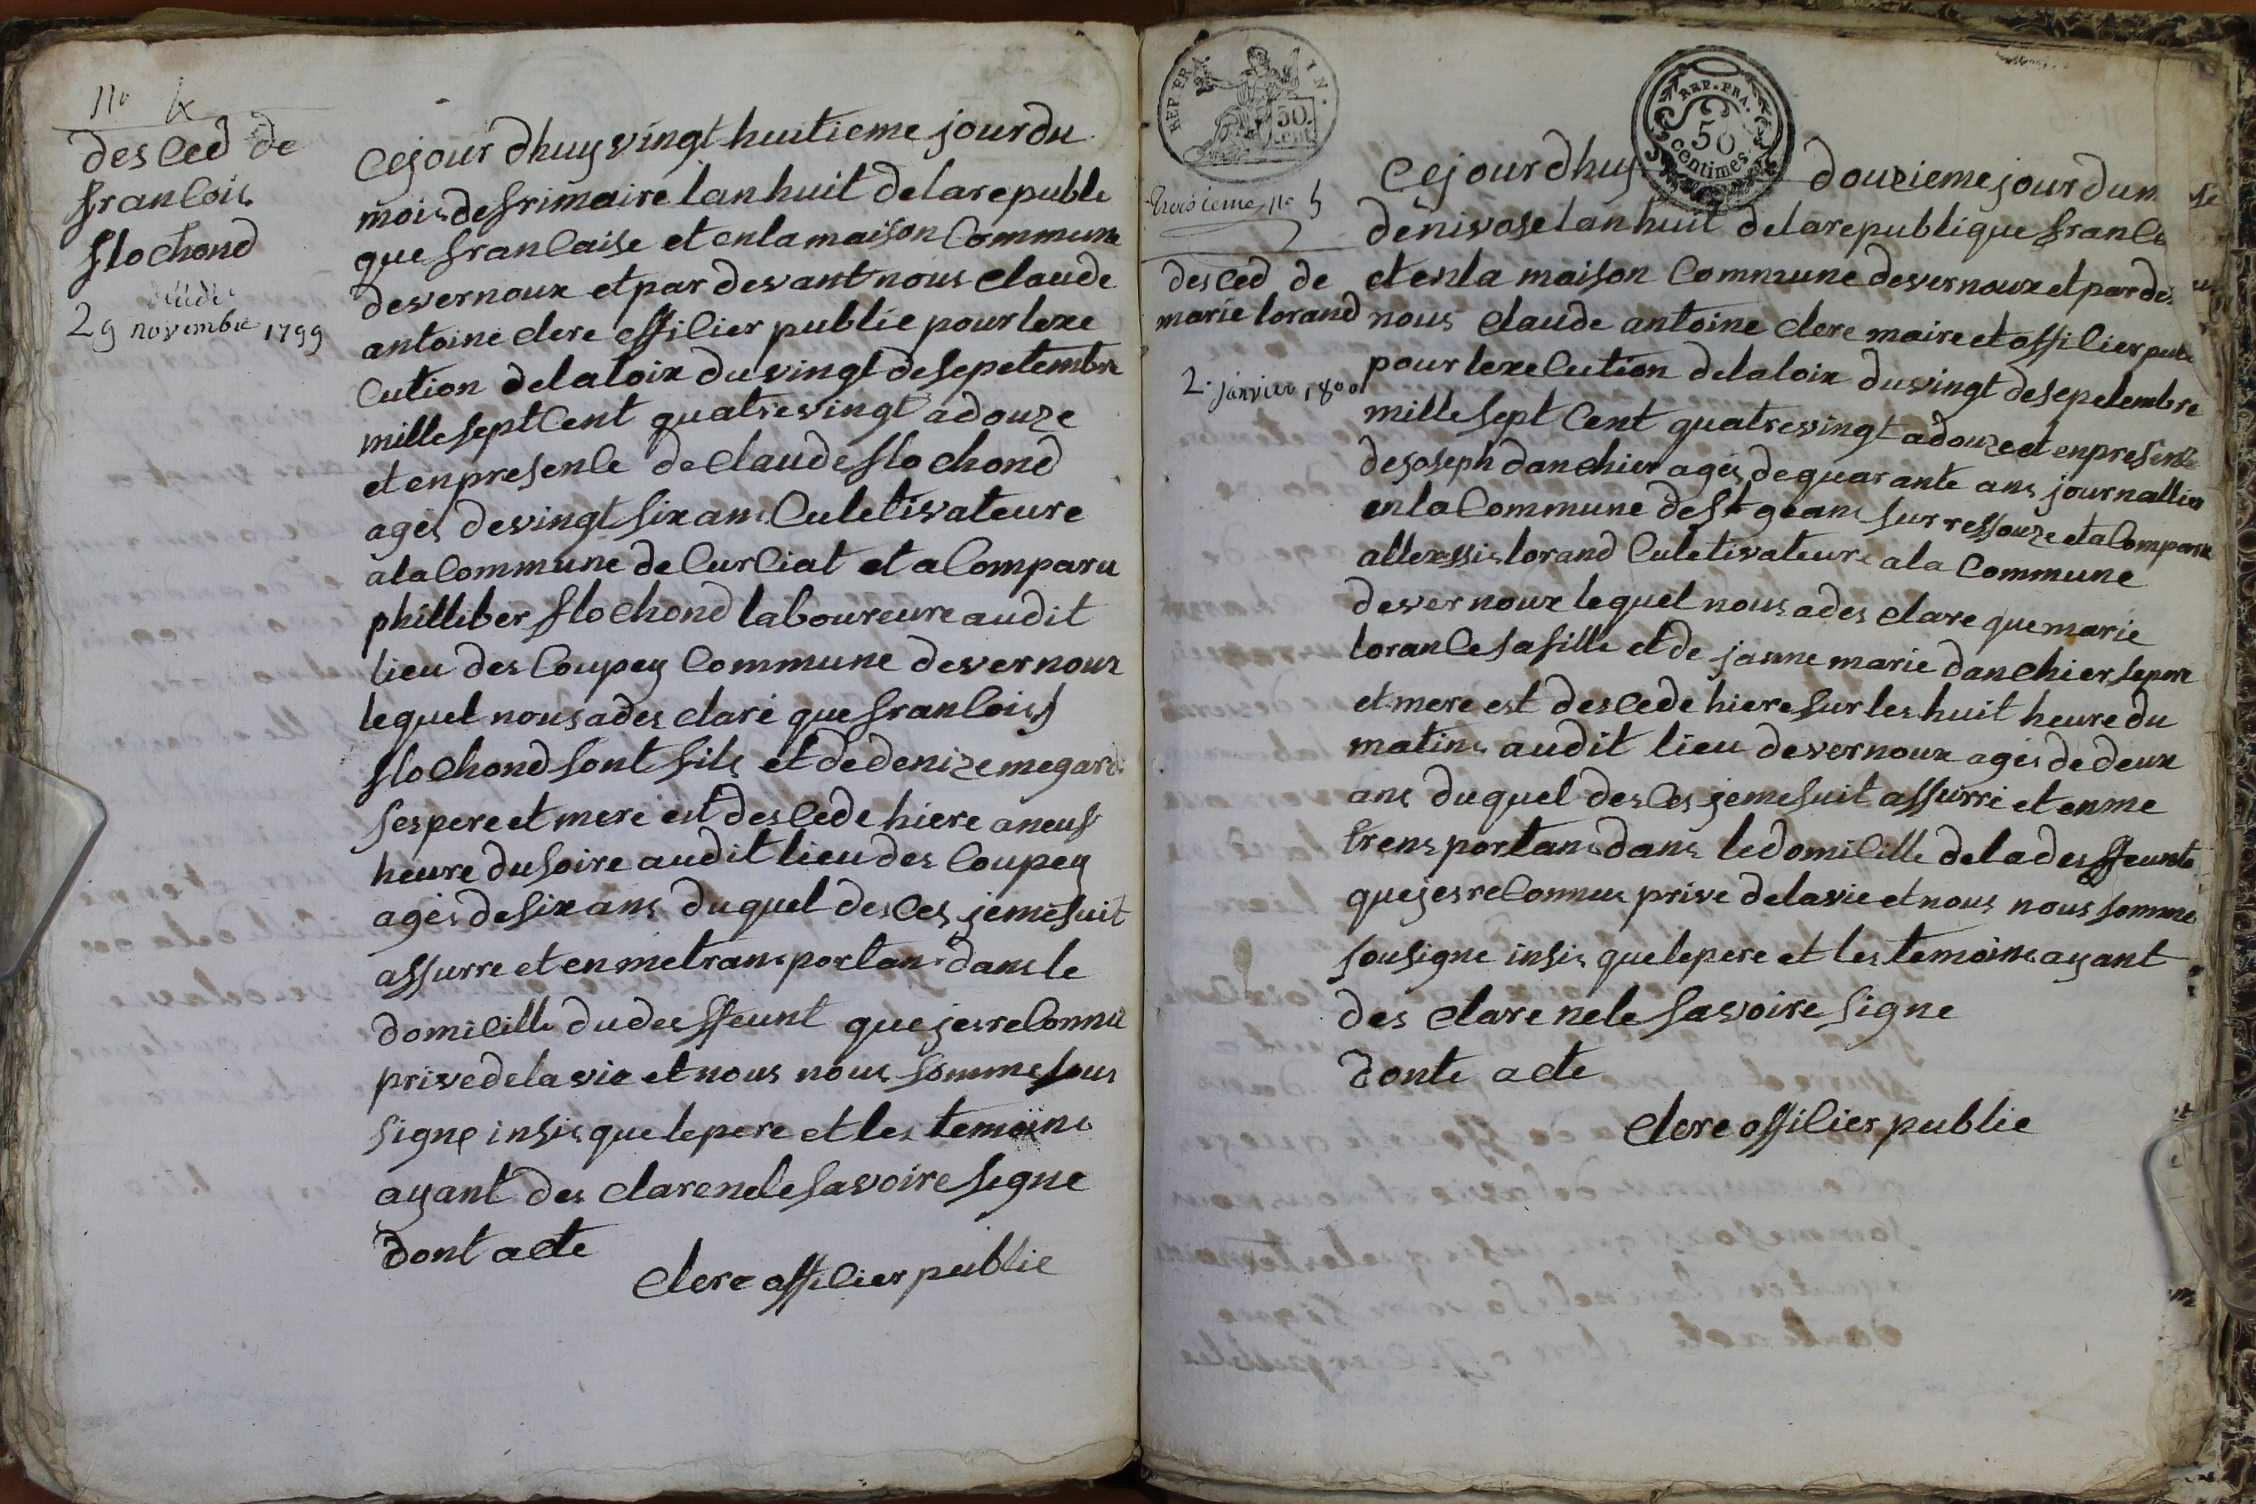 no 4
desCed de
franCois
flochond
29 novembre 1799
Cejour dhuy vingt huitieme jour du
mois de frimaire lan huit de la republi
que franCaise et en la maison Commune
de vernoux et par devant nous Claude
antoine Clere offiCier public pour lexe
Cution de la loix du vingt de sepetembre
mille sept Cent quatre vingt a douze
et en presenCe de Claude flochond
agés de vingt six ans Culetivateure
a la Commune de CurCiat et a Comparu
philliber flochond laboureure audit
lieu des Coupey Commune de vernoux
lequel nous a des claré que franCois
flochond sont fils et de denize megard
ses pere et mere est desCede hiere a neuf
heure du soire audit lieu des Coupey
agés de six ans duquel desCes jeme suit
assurre et en me trans portans dans le
domiCille du desffeunt que jes reConnu
prive de la vie et nous nous somme sous
signe insis que le pere et les temoins
ayant des clare nele savoire signe
dont acte
Clere offiCier public
REP. FRA.
50
cent
troisieme no 5
desCed de
marie lorand
2 janvier 1800
REP. FRA.
50
centimes
Cejourdhuy douzieme jour du m
de nivose lan huit de la republique franCa
et en la maison Commune de vernoux et par de
nous Claude antoine Clere maire et offiCier publi
pour lexeCution de la loix du vingt de sepetembre
mille sept Cent quatre vingt a douze et en presenCe
de joseph danchier agés de quarante ans journallier
en la Commune de St jean sur ressouze et a Comparu
allexssis lorand Culetivateure a la Commune
de vernoux lequel nous a des clare que marie
loranCe sa fille et de janne marie danchier se pere
et mere est desCede hiere sur les huit heure du
matins audit lieu de vernoux agés de deux
ans duquel desCes jeme suit assurré et en me
trens portans dans le domiCille de la desffeunte
que jes reConnue prive de la vie et nous nous somme
sousigne insis que le pere et les temoins ayant
des clare nele savoire signe
donte acte
Clere offiCier public